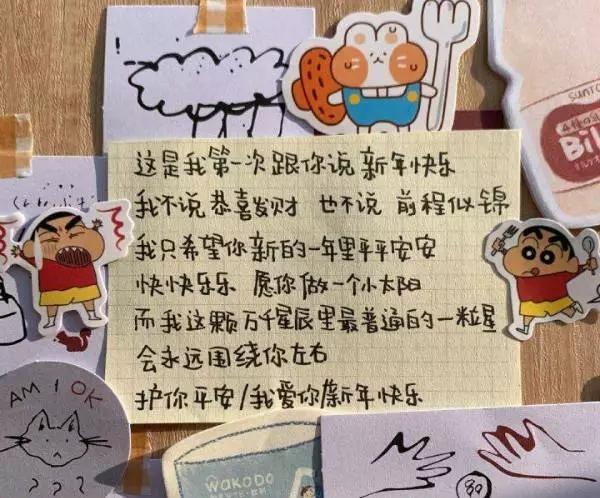 这是我第一次跟你说 新年快乐
我不说恭喜发财 也不说 前程似锦
我只希望你新的一年里平平安安
快快乐乐 愿你做一个小太阳
而我这颗万千星辰里最普通的一粒星
会永远围绕你左右
护你平安/我爱你/新年快乐
!
SUNTO
Bil
AM I OK
? ? ?
wakodo